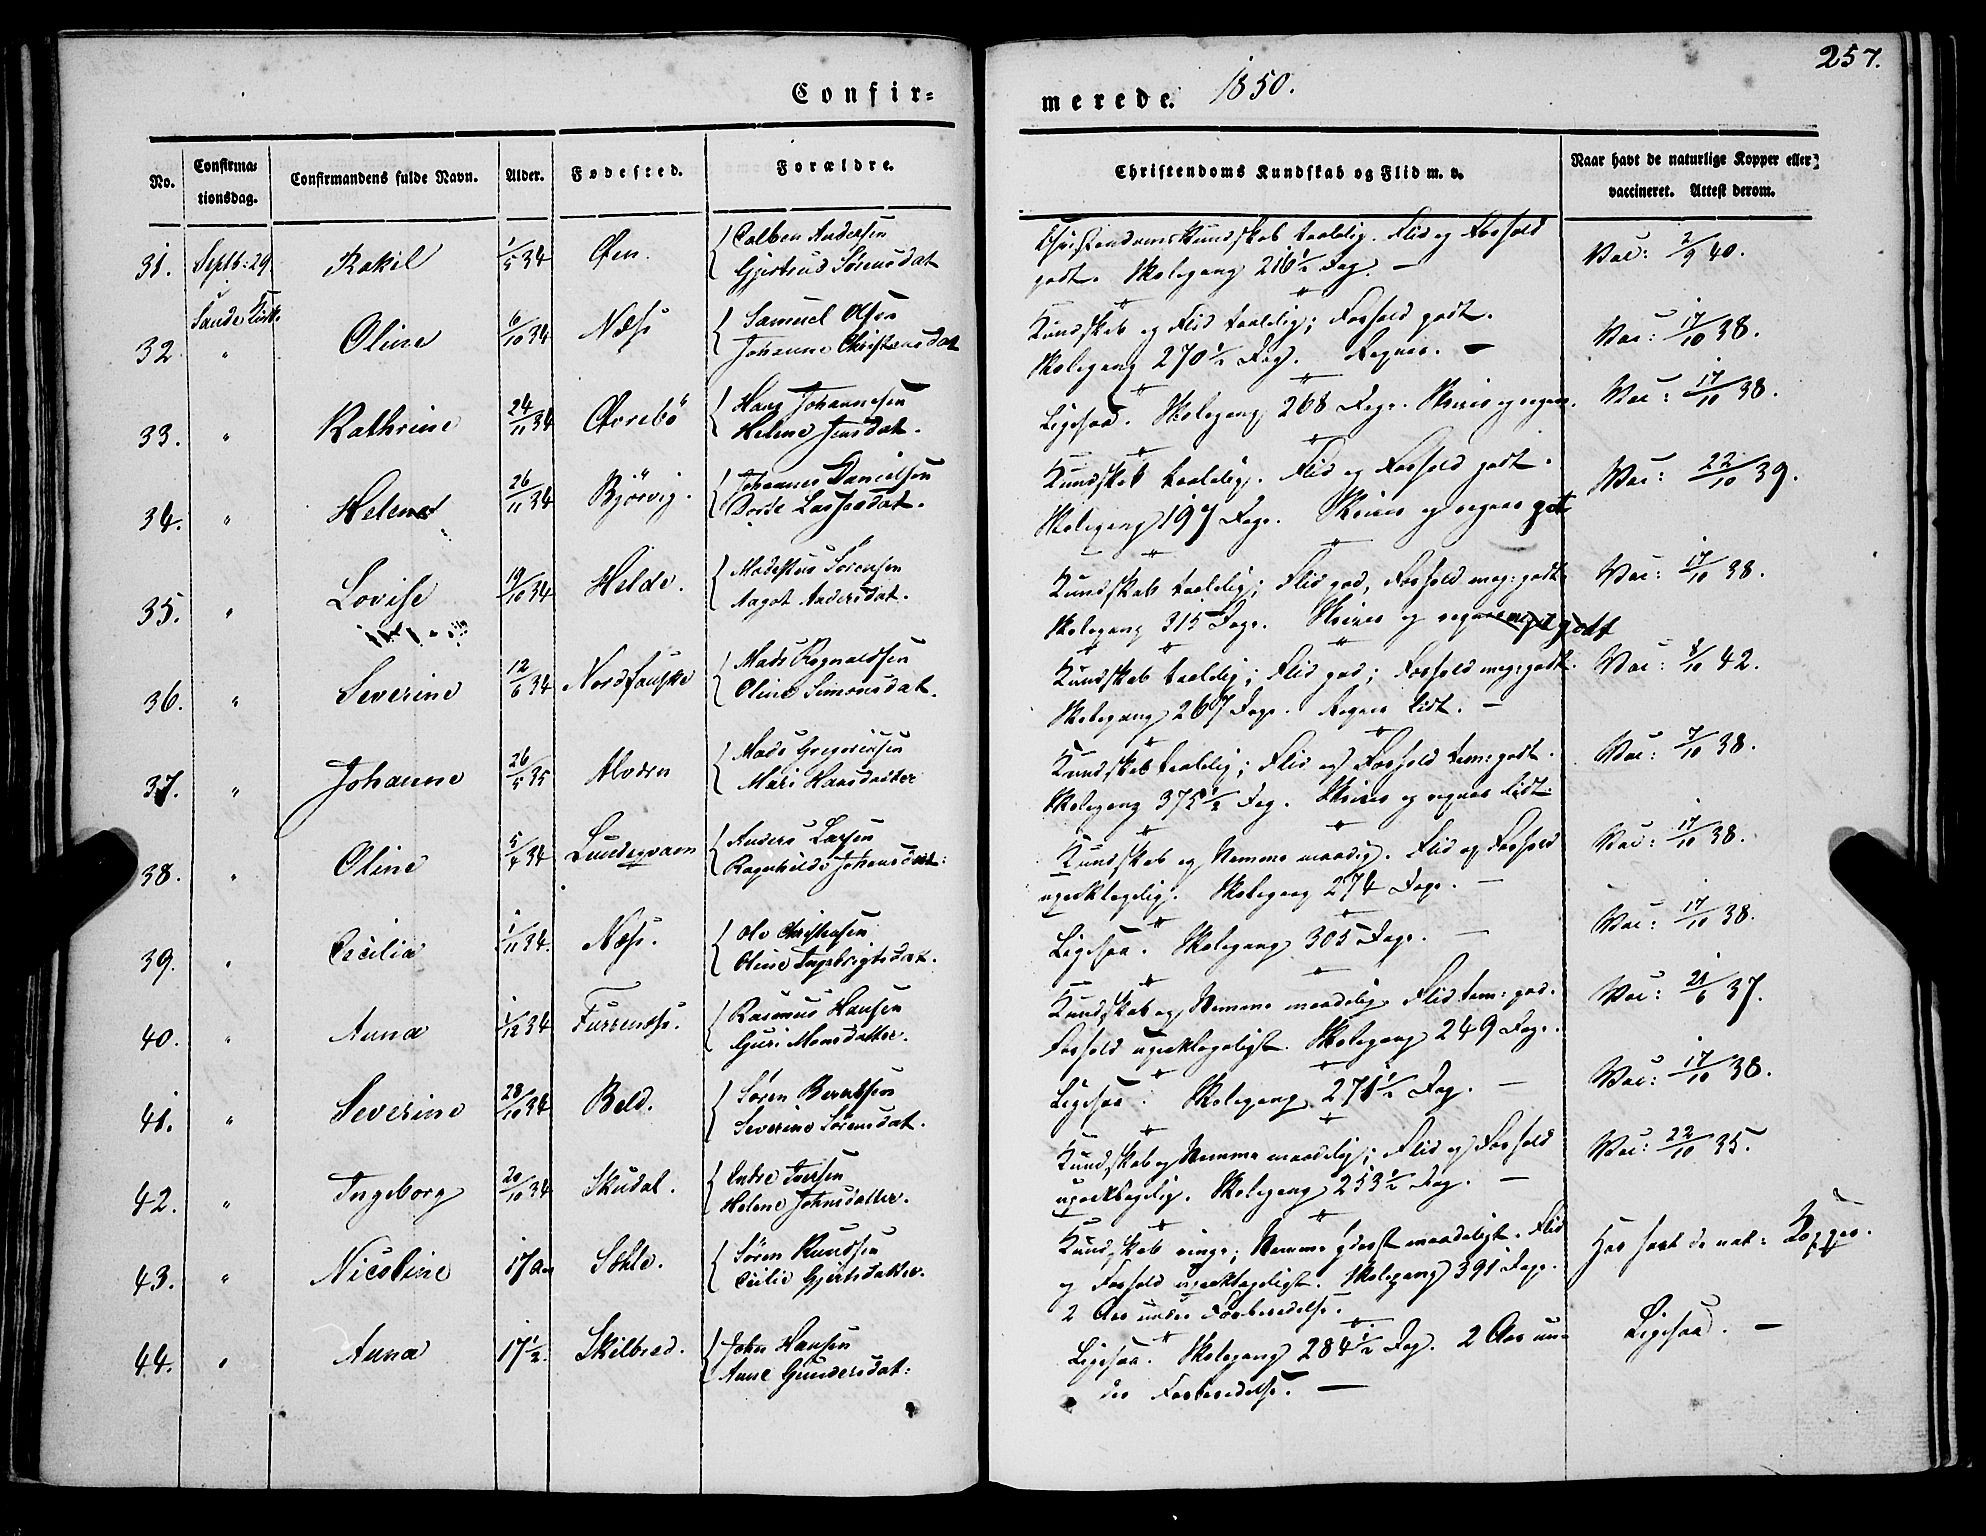 257.
Confir-
merede. 1850.
No.
Confirma-
tionsdag.
Confirmandens fulde Navn.
Alder.
Fødested.
Forældre.
Christendoms Kundskab og Flid m. v.
Naar havt de naturlige Kopper eller
vaccineret. Attest derom.
31. Septb: 29. Rakel 1/5 34 Øen. Colben Andersen
Gjertrud Sørensdat
Christendomskundskab taalelig. Flid og Forhold
godt. Skolegang 216½ Dag. —
Vac: 2/9 40.
Sande Kirk.
32 " Oline 6/10 34 Næss Samuel Olsen
Johanne Christensdat
Kundskab og Flid taalelig; Forhold godt.
Skolegang 270½ Dag. Regner. —
Vac: 17/10 38.
33. " Kathrine 24/11 34 Øvrebö Hans Johannesen
Helene Jensdat.
Ligesaa. Skolegang 268 Dage. Skriver og regner.
Vac: 17/10 38.
34. " Helene 26/11 34 Bjørvig. Johannes Danielsen
Dorte Lassesdat.
Kundskab taalelig. Flid og Forhold godt.
Skolegang 197 Dage. Skriver og regner godt
Vac: 22/10 39.
35. " Lovise 19/10 34 Helde. Modestus Sørensen
Aagot Andersdat.
Kundskab taalelig; Flid god, Forhold meg: godt.
Skolegang 315 Dage. Skriver og regner meget godt
Vac: 17/10 38.
36. " Severine 12/6 34 Nordfauske Mads Rognaldsen
Oline Simonsdat.
Kundskab taalelig; Flid god; Forhold meg: godt.
Skolegang 267 Dage. Regner lidt. —
Vac: 8/10 42.
37. " Johanne 26/5 35 Alværen Mads Gregoriusen
Mari Hansdatter
Kundskab taalelig; Flid og Forhold tem: godt.
Skolegang 375½ Dag. Skriver og regner lidt.
Vac: 7/10 38.
38. " Oline 5/4 34 Lundegvaen Anders Larsen
Ragnhilds Johansdat:
Kundskab og Nemme maadelig. Flid og Forhold
upaaklagelig. Skolegang 274 Dage. —
Vac: 17/10 38.
39. " Cecilia 1/11 34. Næss. Ole Christensen
Oline Ingebrigtsdat.
Ligesaa. Skolegang 305 Dage. —
Vac: 17/10 38.
40. " Anna 1/12 34 Furrenæss. Rasmus Hansen
Guri Monsdatter.
Kundskab og Nemme maadelig. Flid tem: god.
Forhold upaaklageligt. Skolegang 249 Dage.
Vac: 21/6 37.
41. " Severine 28/10 34 Beld. Søren Berntsen
Severine Sørensdat.
Ligesaa. Skolegang 271½ Dag. —
Vac: 17/10 38.
42. " Ingeborg 20/10 34 Skudal. Endre Iversen
Helene Johnsdatter.
Kundskab og Nemme maadelig; Flid og Forhold
upaaklagelig. Skolegang 253½ Dag. —
Vac: 22/10 35.
43. " Nicoline 17 Aar Sæhle. Søren Knudsen
Cecilie Gjertsdatter.
Kundskab ringe; Nemme yderst maadeligt. Flid
og Forhold upaaklageligt. Skolegang 391 Dage.
2 Aar under Forberedelse.
Har havt de nat: Kopper.
44. " Anna 17½. Skilbred. John Hansen
Anne Gundersdat:
Ligesaa. Skolegang 284½ Dag. 2 Aar un-
der Forberedelse. —
Ligesaa. —